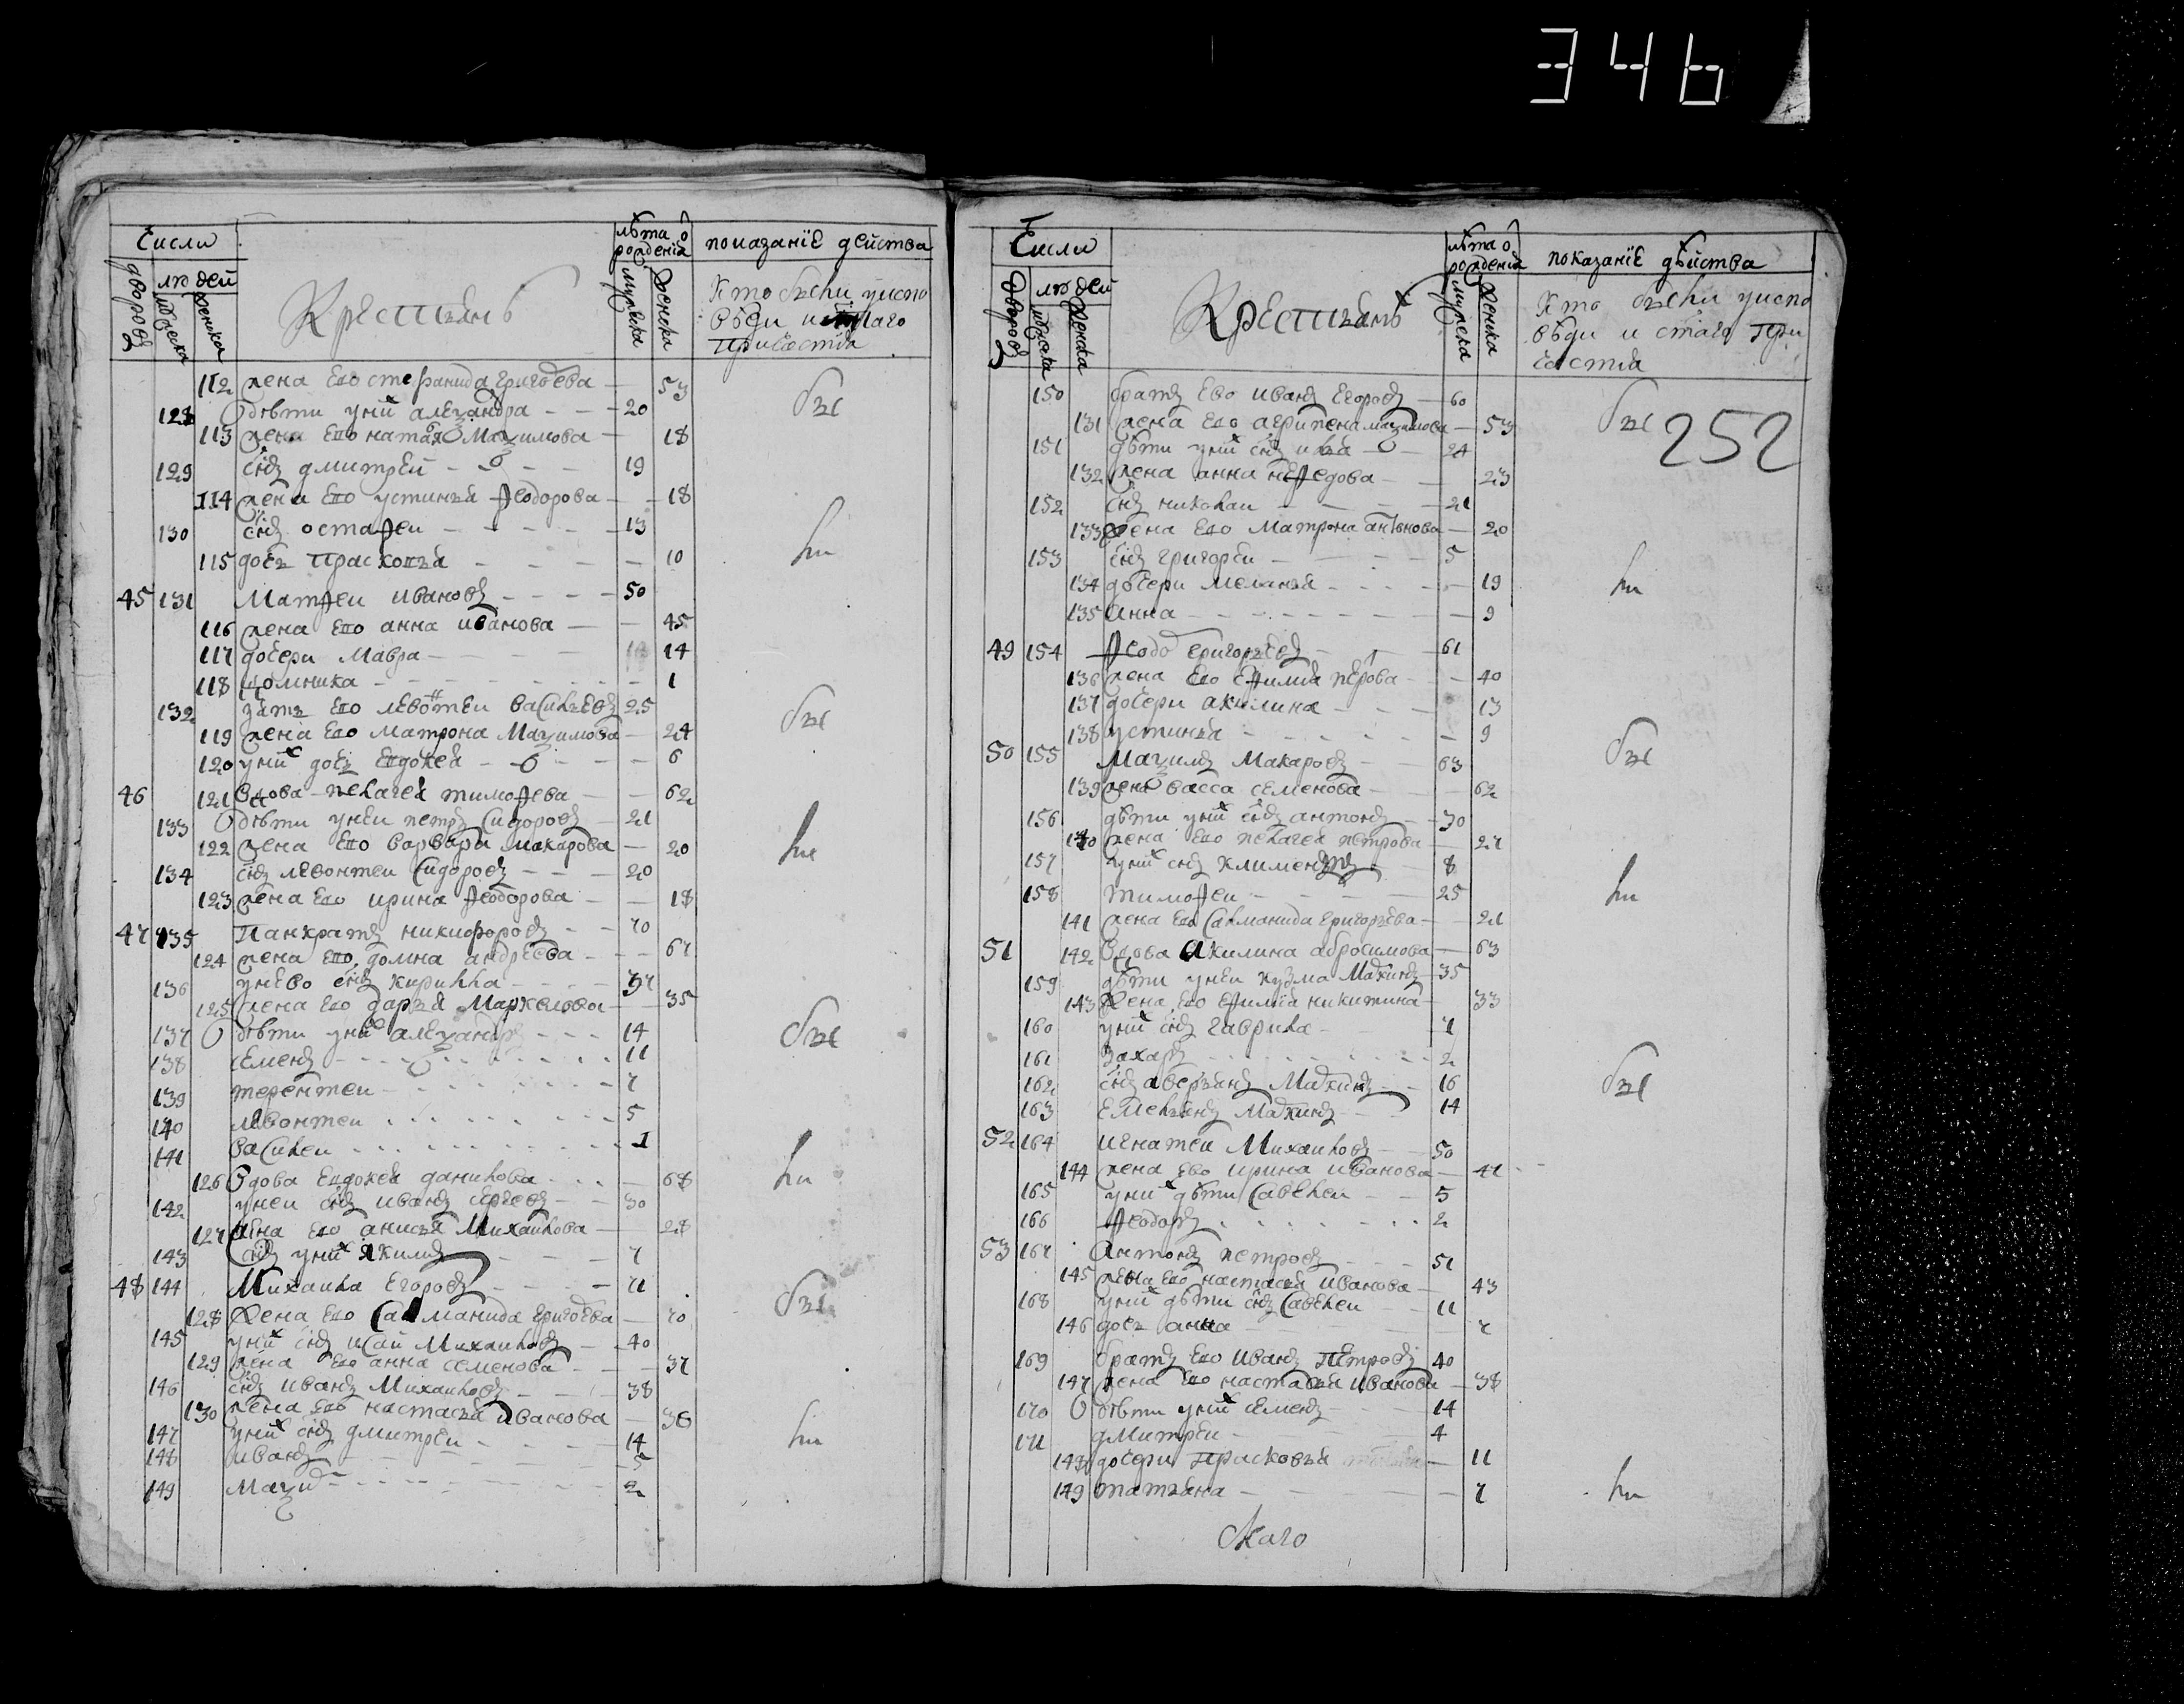 346
Числа
лѣта ѿ рожденїѧ
показанїе действа
дворовъ
людей
мужеска
женска
мужеска
женска
Крестьѧнъ
Кто были уиспо
вѣди и с҃таго
причастїѧ
112 жена ево стефанида григоʼева — 53 были
128 дѣти ихъ алеѯандра — 20
113 жена ево наталья Маѯимова — 18
129 сн҃ъ дмитрей — 19
114 жена ево устинья ѳеодорова — 18
130 сн҃ъ остаѳеи — 13
115 дочь прасковья — 10
45 131 Матѳеи ивановъ — 50
116 жена ево анна иванова — 45
117 дочери мавра — 14
118 — 1
132 зѧть ево левонтеи васильевъ 25 были
119 жена ево матрона Маѯимова — 24
120 уних дочь евдокеѧ — 6
46 121 вдова пелагеѧ тимоѳева — 62
133 дѣти унеи петръ сидоровъ — 21
122 жена ево варвара макарова — 20
134 сн҃ъ левонтеи сидоровъ — 20
123 жена ево ирина ѳеодорова — 18
47 135 Панкратъ никифоровъ — 70
124 жена ево домна андреева — 67
136 унево сн҃ъ кирилла — 37
125 жена ево дарьѧ Маркелова — 35
137 дѣти уних алеѯандръ — 14 были
138 семенъ — 11
139 терентеи — 7
140 левонтеи — 5
141 василеи — 1
126 вдова евдокеѧ данилова — 68
142 унеи сн҃ъ иванъ сергеевъ — 30
127 жена ево анисьѧ Михаилова — 28
143 сн҃ъ уних ѧкимъ — 7
48 144 Михаила Егоровъ — 71
128 жена ево саломанида григоʼева — 70 были
145 уних сн҃ъ исаи Михаиловъ — 40
129 жена ево анна семенова — 37
146 сн҃ъ иванъ Михаиловъ — 38
130 жена ево настасьѧ иванова — 36
147 уних сн҃ъ дмитреи — 14
148 иванъ — 5
149 Маѯим — 2
Числа
лѣта ѿ рожденїѧ
показанїе дѣйства
дворовъ
людей
мужеска
женска
мужеска
женска
Крестьѧнъ
Кто были уиспо
вѣди и с҃таго при
частїѧ
252
150 братъ ево иванъ Егоровъ — 60
131 жена ево агрипена маѯимова — 53 были
151 дѣти уних сн҃ъ илья — 24
132 жена анна неѳедова — 23
152 сн҃ъ николаи — 21
133 жена ево матрона антонова — 20
153 сн҃ъ григореи — 5
134 дочери меланьѧ — 19
135 Анна — 9
49 154 Ѳеодо григорьевъ — 61
136 жена ево еѳимьѧ петрова — 40
137 дочери акилина — 13
138 устиньѧ — 9
50 155 Маѯимъ Макаровъ — 63 были
139 жена васса семенова — 62
156 дѣти уних сн҃ъ антонъ — 30
140 жена ево пелагеѧ петрова — 27
157 уних сн҃ъ климентъ — 8
158 тимоѳеи — 25
141 жена ево саломанида григорьева — 21
51 142 вдова акилина абросимова — 63
159 дѣти унеи кузма — 35
143 жена ево еѳимїѧ никитина — 33
160 уних сн҃ъ гаврила — 7
161 захаръ — 2
162 сн҃ъ аверьѧнъ — 16 были
163 Емельѧнъ — 14
52 164 игнатеи Михаиловъ — 50
144 жена ево ирина иванова — 47
165 уних дѣти савелеи — 5
166 Ѳеодоръ — 2
53 167 Антонъ петровъ — 51
145 жена ево настасьѧ иванова — 43
168 уних дѣти сн҃ъ савелеи — 11
146 дочь анна — 7
169 братъ ево иванъ петровъ 40
147 жена ево настасьѧ иванова — 38
170 дѣти уних семенъ — 14
171 дмитреи — 4
148 дочери прасковьѧ — 11
149 татьѧна — 7
скаго